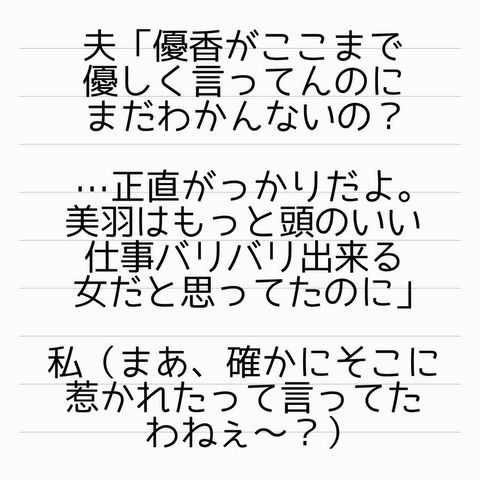 夫「優香がここまで
優しく言ってんのに
まだわかんないの？
…正直がっかりだよ。
美羽はもっと頭のいい
仕事バリバリ出来る
女だと思ってたのに」
私（まあ、確かにそこに
惹かれたって言ってた
わねぇ〜？）